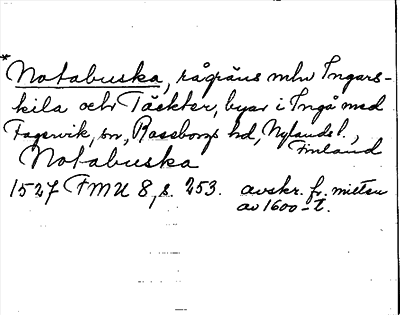 * Notabuska, rågräns mlw Ingars-
kila och Täckter, byar i Ingå med
Fagervik, sn, Raseborgs hd, Nylands l.,
Finland
Notabuska
1527 FMU 8, s. 253. avskr. fr. mitten
av 1600-t.